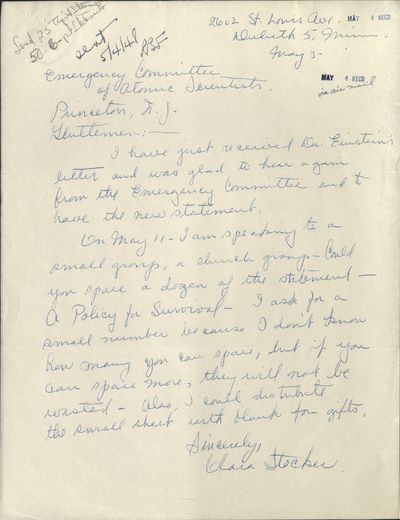 Send 25 Einstein
50 E-pt
sent
5/4/48
2602 St. Louis Ave.
MAY 4 RECD
Duluth 5, Minn.
May 3-
MAY 4 RECD
via air mail
Emergency Committee
of Atomic Scientists,
Princeton, N.J.
Gentlemen:-
I have just received Dr. Einstein's
letter and was glad to hear again
from the Emergency Committee and to
have the new statement.
On May 11- I am speaking to a
small group, a church group- Could
you space a dozen of the statement-
A Policy for Survival- I ask for a
small number because I don't know
how many you can space, but if you
can space more, they will not be
wasted- Also, I could distribute
the small sheet with blank for gifts.
Sincerely,
Clara Stocker.